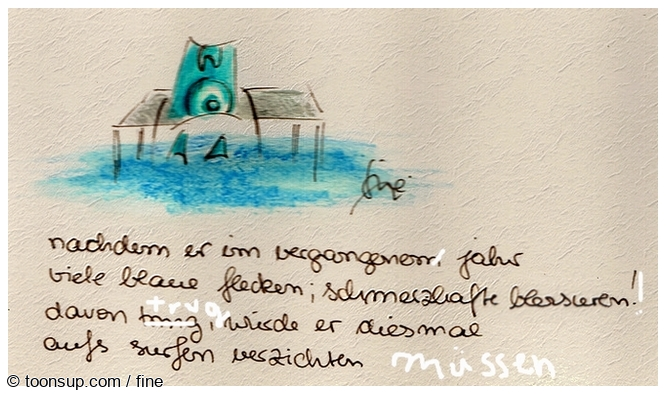 fine
nachdem er im vergangenem jahr
viele blaue flecken; schmerzhafte blessuren!
davon trug, würde er diesmal
aufs surfen verzichten müssen
© toonsup.com / fine